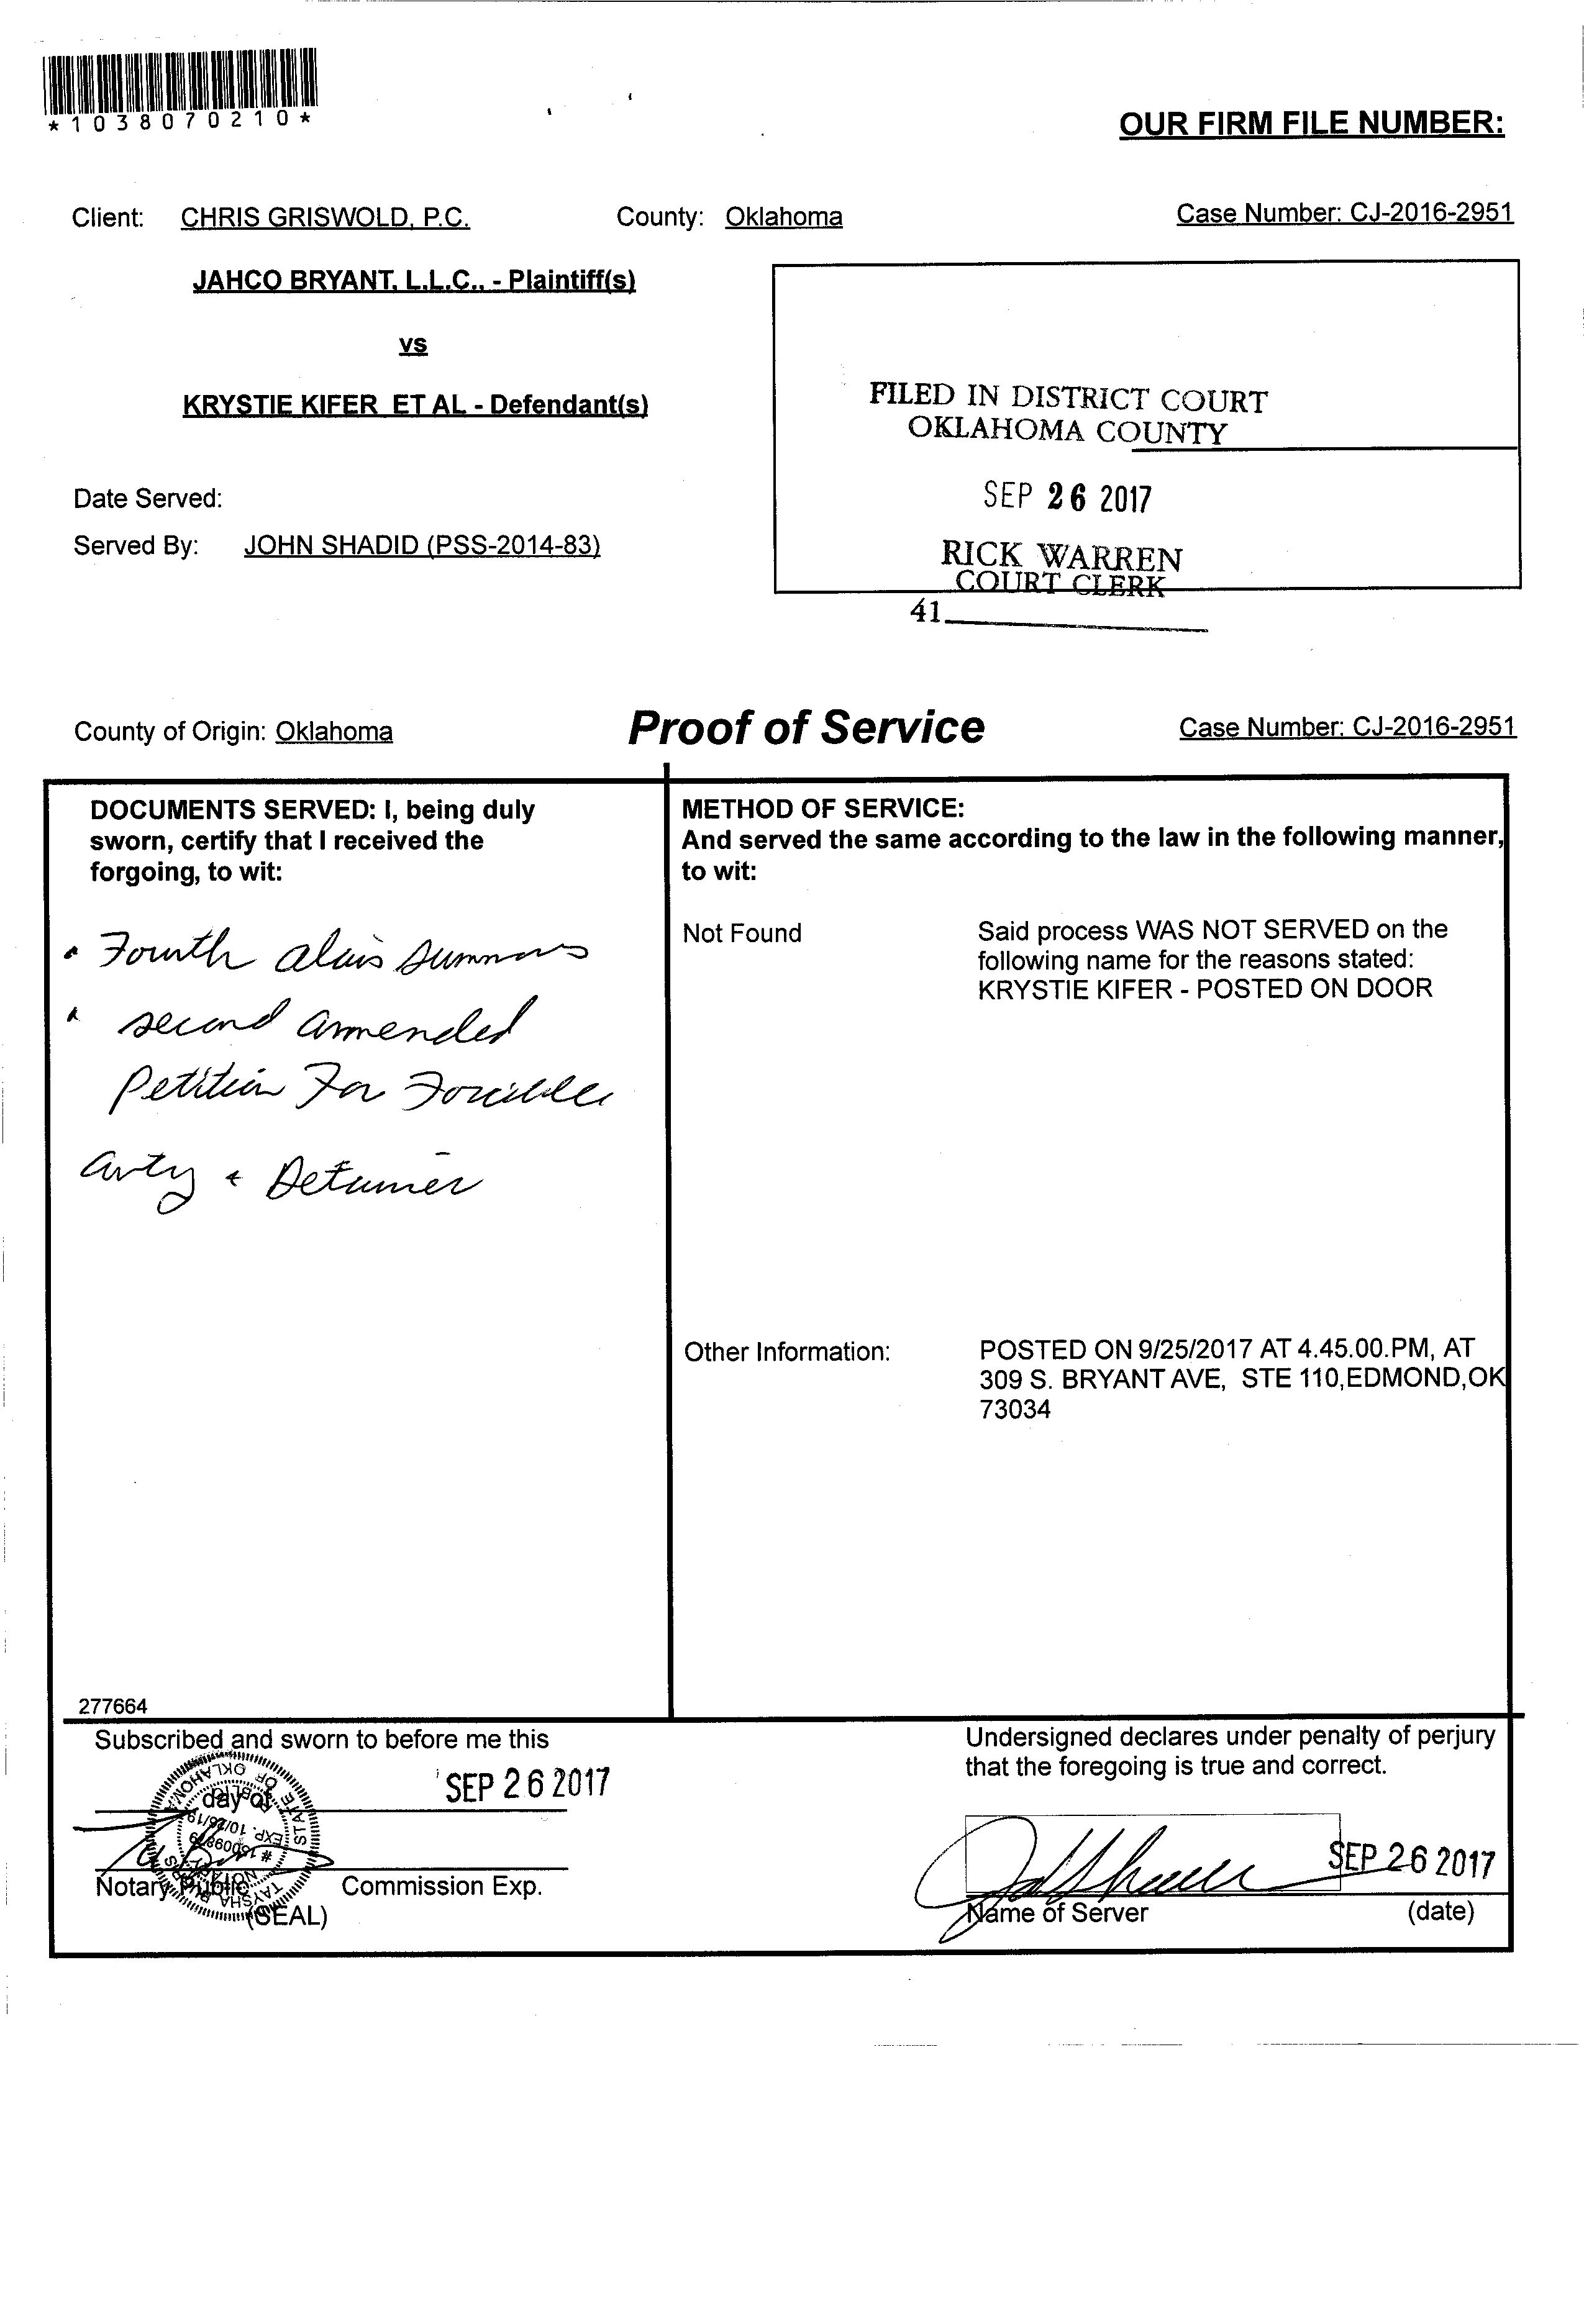 *1038070210*
OUR FIRM FILE NUMBER:
Client: CHRIS GRISWOLD, P.C. County: Oklahoma Case Number: CJ-2016-2951
JAHCO BRYANT, L.L.C., - Plaintiff(s)
vs
KRYSTIE KIFER ET AL - Defendant(s)
FILED IN DISTRICT COURT
OKLAHOMA COUNTY
SEP 26 2017
RICK WARREN
COURT CLERK
41
Date Served:
Served By: JOHN SHADID (PSS-2014-83)
County of Origin: Oklahoma Proof of Service Case Number: CJ-2016-2951
DOCUMENTS SERVED: I, being duly
sworn, certify that I received the
forgoing, to wit:
Fourth alais summons
second amended
Petition For Forcible
& Detainer
METHOD OF SERVICE:
And served the same according to the law in the following manner,
to wit:
Not Found Said process WAS NOT SERVED on the
following name for the reasons stated:
KRYSTIE KIFER - POSTED ON DOOR
Other Information: POSTED ON 9/25/2017 AT 4.45.00.PM, AT
309 S. BRYANT AVE, STE 110,EDMOND,OK
73034
277664
Subscribed and sworn to before me this
day of SEP 26 2017
Notary Public Commission Exp.
(SEAL)
STATE OF OKLAHOMA
EXP. 10/26/19
Undersigned declares under penalty of perjury
that the foregoing is true and correct.
SEP 26 2017
Name of Server (date)